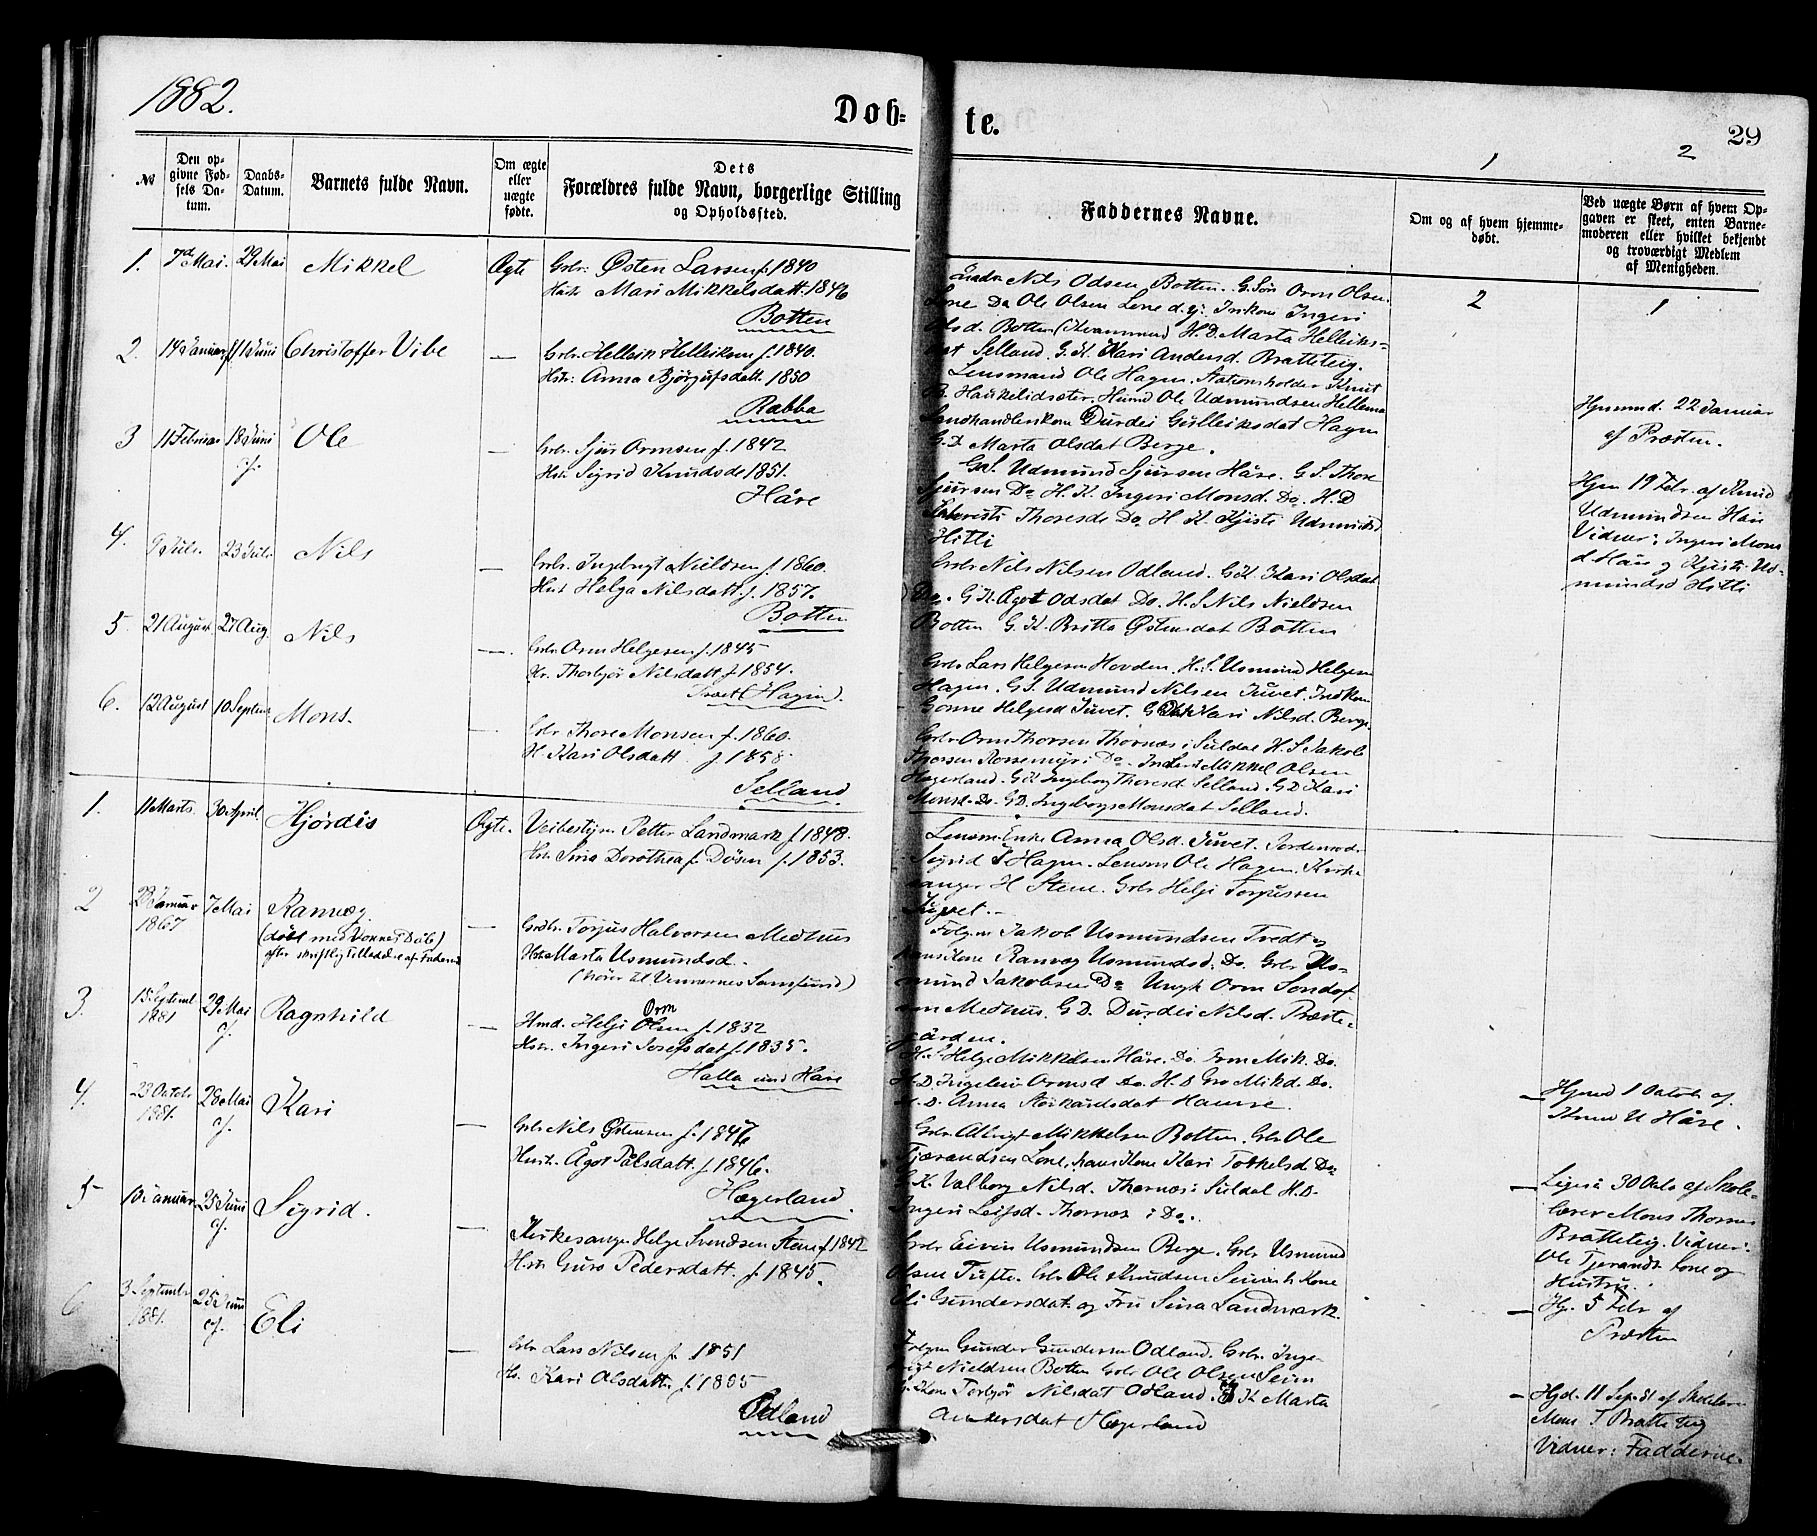 1882.
Døb=
te.
29
1
2
№
Den op-
givne Fød-
sels Da-
tum.
Daabs-
Datum.
Barnets fulde Navn.
Om ægte
eller
uægte
fødte.
Dets
Forældres fulde Navn, borgerlige Stilling
og Opholdssted.
Faddernes Navne.
Om og af hvem hjemme-
døbt.
Ved uægte Børn af hvem Op-
gaven er skeet, enten Barne-
moderen eller hvilket bekjendt
og troværdigt Medlem
af Menigheden.
2
1
1. 7d Mai. 29 Mai Mikkel Ægte Grbr: Østen Larsen f. 1840
Hstr Mari Mikkelsdatt. 1846
Botten
Nils Odsen Botten. G. Søn Orm Olsen
Lone Do Ole Olsen Lone d. y. Ingeri
Olsd. Botten H. D. Marta Helleiks-
Selland. G. K. Kari Andersd. Bratteteig.
2. 14 Januar 11 Juni Christoffer Vibe — Grbr. Helleik Helleiksen f. 1840.
Hstr: Anna Bjørgufsdatt. 1850
Rabba
Lensmand Ole Hagen. Stationsholder Knut
Haukelidsæter. Ole Udmundsen Hellemo
Landhandlerkone Durdei Gulleiksdat Hagen
G. D Marta Olsdat Berge.
22 Januar
af Præsten.
3 11 Februar 18 Juni Ole — Grbr. Sjur Ormsen f. 1842
Hstr Sigrid Knudsd. 1851.
Håre
Udmund Sjursen Håre. G S. Thore
Sjursen Do H. K. Ingeri Monsd. Do. H. D
Thoresd. Do H K Kjisti Udmundsd
Hitli
Hjem 19 Febr. af Knud
Udmundsen Håre
Vidner: Ingeri Mons
d Håre og Kjisti Ud-
mundsd Hitli
4. 9 Juli. 23 Juli. Nils — Grbr. Ingebrigt Nieldsen f. 1860.
Hust Helga Nilsdatt f. 1857.
Botten
Grbr Nils Nilsen Odland. G K. Kari Olsdat
Do. G K. Ågot Odsdat Do. H. S Nils Nieldsen
Botten G. K. Britta Østensdat Botten
5. 21 August 27 Aug. Nils — Grbr. Orm Helgesen f. 1845
Hr. Thorbjør Nilsdatt f. 1854.
(Hagen).
Grbr Lars Helgesen Hovden. H. S. Usmund Helgesen
Hagen. G S. Udmund Nilsen Juvet.
Gonne Helgesd Juvet. Kari Nilsd. Berge
6. 12 August 10 Septemb Mons. — Grbr Thore Monsen f. 1860.
H. Kari Olsdatt f 1858
Selland
Grbr Orm Thorsen Thornæs i Suldal H. S Jakob
Thorsen Rossemyr i Do. Mikkel Olsen
Hægerland. Ingeborg Thoresd. Selland. G D Kari
Monsd. Do. G D. Ingeborg Monsdat Selland.
1. 11 Marts 30 April Hjørdis Ægte. Veibestyrer Petter Landmark f. 1848.
Hstr Sina Dorothea f. Døsen f. 1853.
Lensm. Enke Anna Olsd. Juvet. Jordemod.
Sigrid S Hagen. Lensm Ole Hagen. Kirke-
sanger H Stene. Grbr Helje Torjussen
Juvet.—
2 Januar
1867 7 Mai Ranveg
(døbt med Voxnes Dåb)
efter skriftlig Tilladelse af Faderen
Grbr. Torjus Halvorsen Medhus
Hstr Marta Usmundsd.
(hører til Vennernes Samfund)
Jakob Usmundsen Tvedt og
hans Kone Ranveg Usmundsd. Do. Grbr Us-
mund Jakobsen Do Ungk Orm
Medhus. G D. Durdei Nilsd. Præste-
gården.
3. 15 Septemb
1881 29 Mai Ragnhild — Hmd. Helje Orm Olsen f. 1832
Hstr. Ingeri Josefsdat f. 1835.
Halla und Håre
H. S Helge Mikkelsen Håre. Do. Orm Mik. Do.
H. D. Ingeleiv Ormsd Do. H. D Gro Mikd. Do.
H. D. Anna Storkårdsdat Hamre.
Hjemd 1 Octob af
Knud U Håre.
4. 23 Octob
1881. 28 Mai Kari — Grbr Nils Østensen f. 1847
Hustr. Ågot Pålsdatt. f 1846.
Hægerland.
Grbr Albrigt Mikkelsen Botten. Grbr Ole
Tjærandsen Lone, hans Kone Kari Torkelsd. Do
G. K. Valborg Nilsd. Thornæs i Suldal H. D.
Ingeri Leifsd. Thornæs i Do.
Ligeså 30 Octo af Skole-
lærer Mons Thorsen
Bratteteig. Vidner:
Ole Tjerands. Lone og
Hustru.
5 10 Januar 25 Juni Sigrid. — Kirkesanger Helge Svendsen Stene f. 1842
Hstr Guro Pedersdatt. f. 1845.
Grbr Eivin Usmundsen Berge. Grbr Usmund
Olsen Tufte. Grbr Ole Knudsen Kone
Eli Gundersdat. og Fru Sina Landmark.
Hj. 5 Febr af
Præsten
6 3 September
1881. 25 Juni Eli — Grbr Lars Nilsen f. 1851
Hs. Kari Olsdatt. f. 1855
Odland
Gunder Gundersen Odland. Grbr. Inge-
brigt Nieldsen Botten Grbr Ole Olsen Seim
G. Kone Torbjør Nilsdat Odland. G K Marta
Andersdat Hægerland
Hjd. 11 Sept. 81 af Skolelærer
Mons T Bratteteig
Vidner: Fadderne.